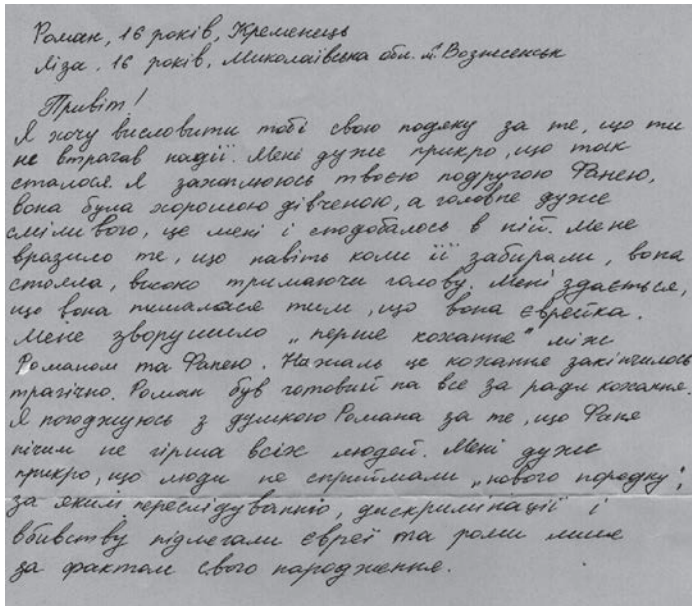 Роман, 16 років, Кременець
Ліза, 16 років, Миколаївська обл. м. Вознесенськ
Привіт!
Я хочу висловити тобі свою подяку за те, що ти
не втрачав надії. Мені дуже прикро, що так
сталося. Я захоплююсь твоєю подругою Фанею,
вона була хорошою дівченою, а головне дуже
сміливою, це мені і сподобалось в ній. Мене
вразило те, що навіть коли її забирали, вона
стояла, високо тримаючи голову. Мені здається,
що вона пишалася тим, що вона єврейка.
Мене зворушило „перше кохання" між
Романом та Фанею. Нажаль це кохання закінчилось
трагічно. Роман був готовий на все за ради кохання.
Я погоджуюсь з думкою Романа за те, що Фаня
нічим не гірша всіх людей. Мені дуже
прикро, що люди не сприймали „нового порядку",
за яким переслідуванню, дискримінації і
вбивству підлягали євреї та роми лише
за фактом свого народження.